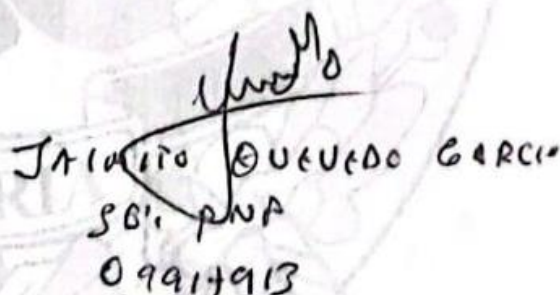 JACINTO QUEVEDO GARCIA
SB1. PNP
09917913